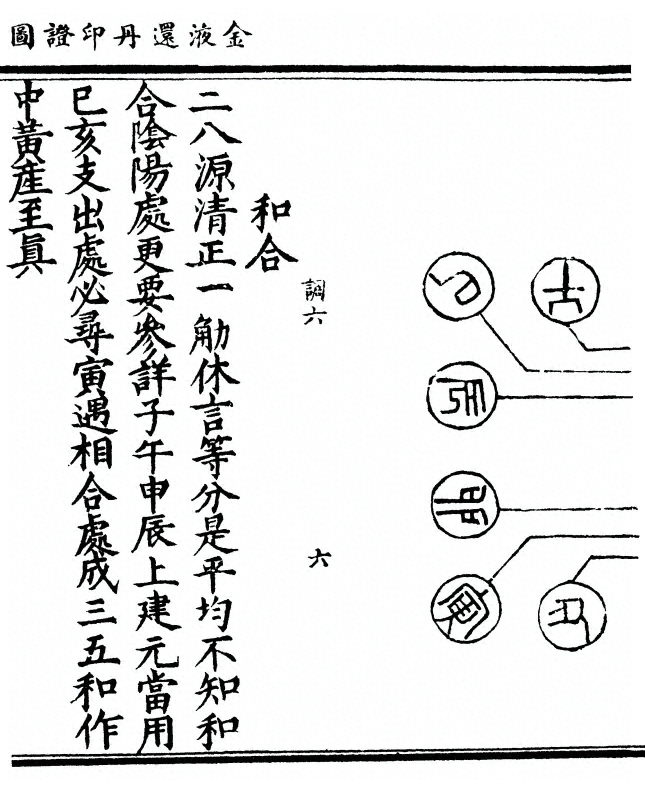 金液還丹印證圖
午
丑
巳
辰
卯
寅
調六
六
和合
二八源清正一觔休言等分是平均不知和
合陰陽處更要參詳子午申辰上建元當用
巳亥支出處必尋寅遇相合處成三五和作
中黃產至眞